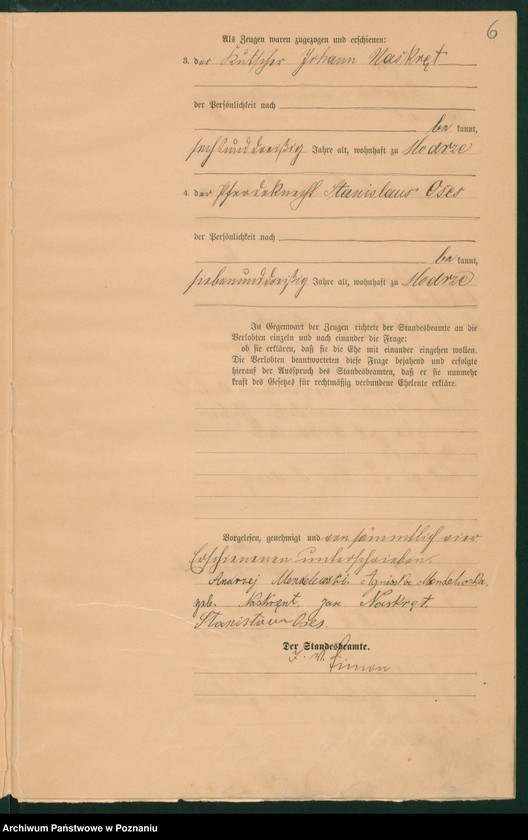 6
Als Zeugen waren zugezogen und erschienen:
3. der Kutscher Johann Naskręt
der Persönlichkeit nach
be kannt,
sechsunddreißig Jahre alt, wohnhaft zu Modrze
4. der Pferdeknecht Stanislaus Oses
der Persönlichkeit nach
be kannt,
siebenunddreißig Jahre alt, wohnhaft zu Modrze
In Gegenwart der Zeugen richtete der Standesbeamte an die
Verlobten einzeln und nach einander die Frage:
ob sie erklären, daß sie die Ehe mit einander eingehen wollen.
Die Verlobten beantworteten diese Frage bejahend und erfolgte
hierauf der Ausspruch des Standesbeamten, daß er sie nunmehr
kraft des Gesetzes für rechtmäßig verbundene Eheleute erkläre.
Vorgelesen, genehmigt und von sämmtlich vier
Erschienenen unterschrieben.
Andrzej Mendelewski. Agnieszka Mendelewska.
geb. Naskręnt. Jan Naskręt.
Stanisław Oses.
Der Standesbeamte.
J. V. Simon
Archiwum Państwowe w Poznaniu